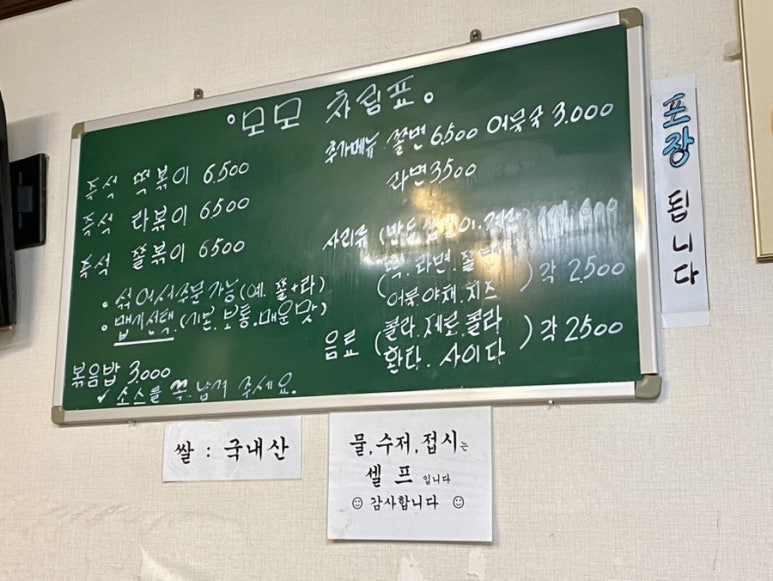 모모 차림표
즉석 떡볶이 6,500
즉석 라볶이 6500
즉석 쫄볶이 6500
• 섞어서 주문 가능 (예. 쫄+라)
• 맵기 선택. (기본. 보통. 매운맛)
볶음밥 3,000
✓ 소스를 꼭 남겨 주세요.
추가메뉴 쫄면 6,500 어묵국 3,000
라면 3,500
사리류 (
떡. 라면. 쫄면
어묵. 야채. 치즈 ) 각 2,500
음료 ( 콜라. 제로. 콜라
환타. 사이다 ) 각 2500
포장 됩니다
쌀 : 국내산
물, 수저, 접시는
셀프 입니다
☺ 감사합니다 ☺